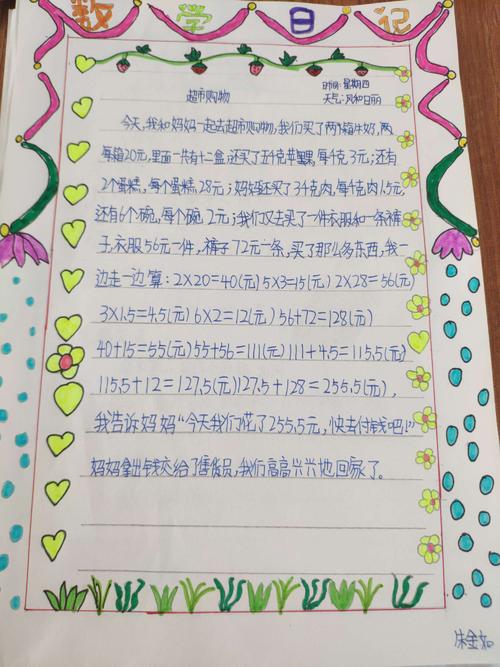 数学日记
时间:星期四
超市购物
天气:风和日丽
今天,我和妈妈一起去超市购物,我们买了两箱牛奶,两
每箱20元,里面一共有十二盒,还买了五千克苹果,每千克3元;还有
2个蛋糕,每个蛋糕28元;妈妈还买了3千克肉,每千克肉1.5元,
还有6个碗,每个碗2元;我们又去买了一件衣服和一条裤
子,衣服56元一件,裤子72元一条,买了那么多东西,我一
边走一边算:2×20=40(元)5×3=15(元)2×28=56(元)
3×1.5=4.5(元)6×2=12(元)56+72=128(元)
40+15=55(元)55+56=111(元)111+4.5=115.5(元)
115.5+12=127.5(元)127.5+128=255.5(元),
我告诉妈妈“今天我们花了255.5元,快去付钱吧!”
妈妈拿出钱交给了售货员,我们高高兴兴地回家了。
朱金如